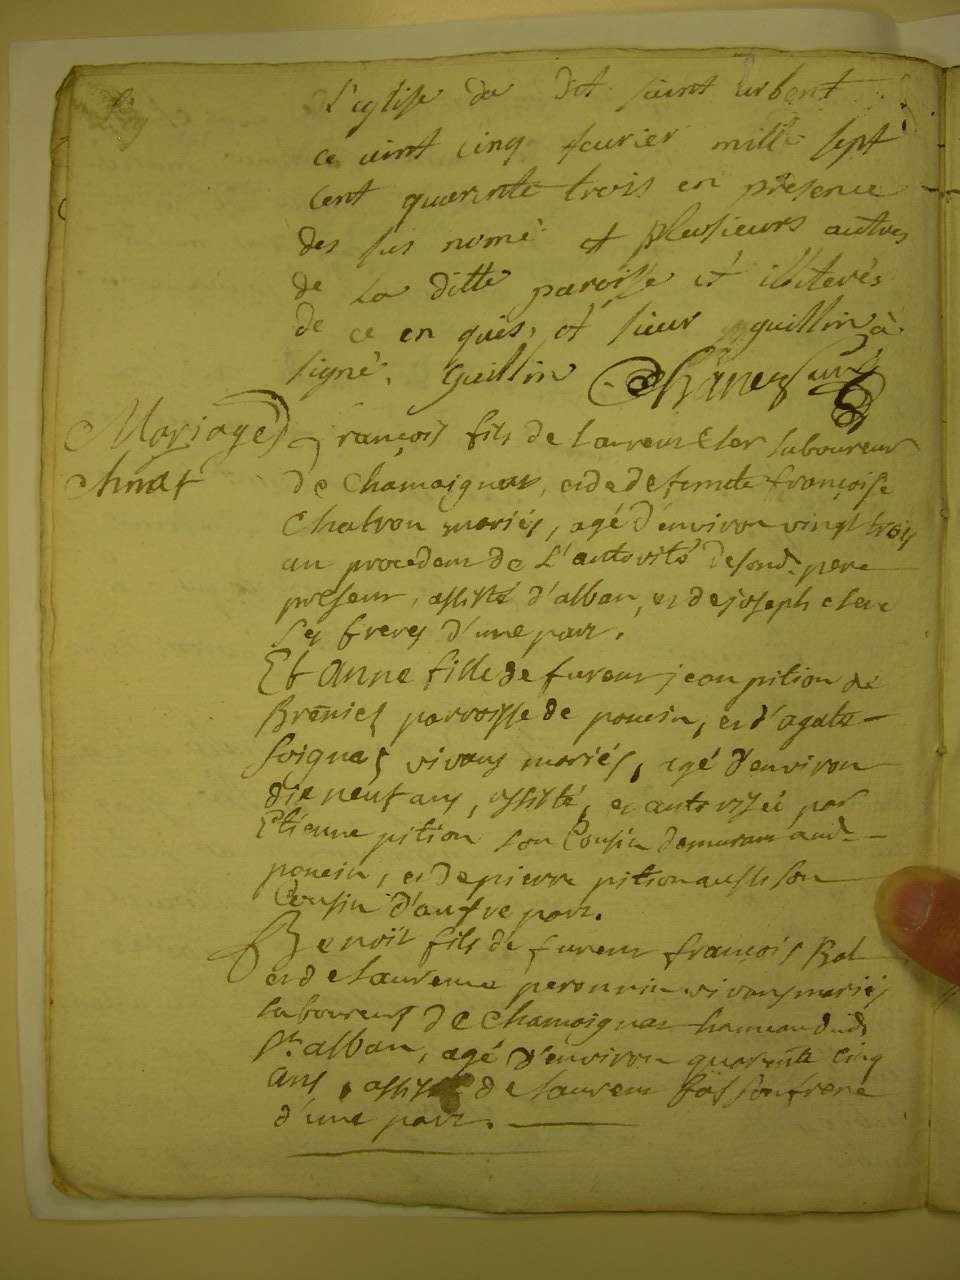 L'eglise du dit saint urbent
ce vint cinq feurier mille sept
cent quarente trois en presence
des sus nomé et plusieurs autres
de La ditte paroisse et illiterés
de ce en quis, et sieur guillin à
signé. Guillin
Mariages
françois fils de laurens Cler laboureur
de Chamaignat, et de defunte françoise
Chatron mariés, agé d'environ vingt trois
an procedant de L'autorité de sond. pere
present, assisté d'alban, et de joseph clerc
ses freres d'une part.
Et Anne fille de fureur jean pition de
Breniet parroisse de poncin, et d'agathe
soignes vivans mariés, agé d'environ
die neuf ans, assisté, et autorizéé par
Etienne pition son Cousin demeurant aud.
poncin, et de pierre pition aussi son
Cousin d'autre part.
Benoit fils de fureur françois Bol
et de laurence peronnin vivans mariés
laboureurs de Chamaignat hameau dud.
St. alban, agé d'environ quarente cinq
ans, assisté de laurent son frere
d'une part.